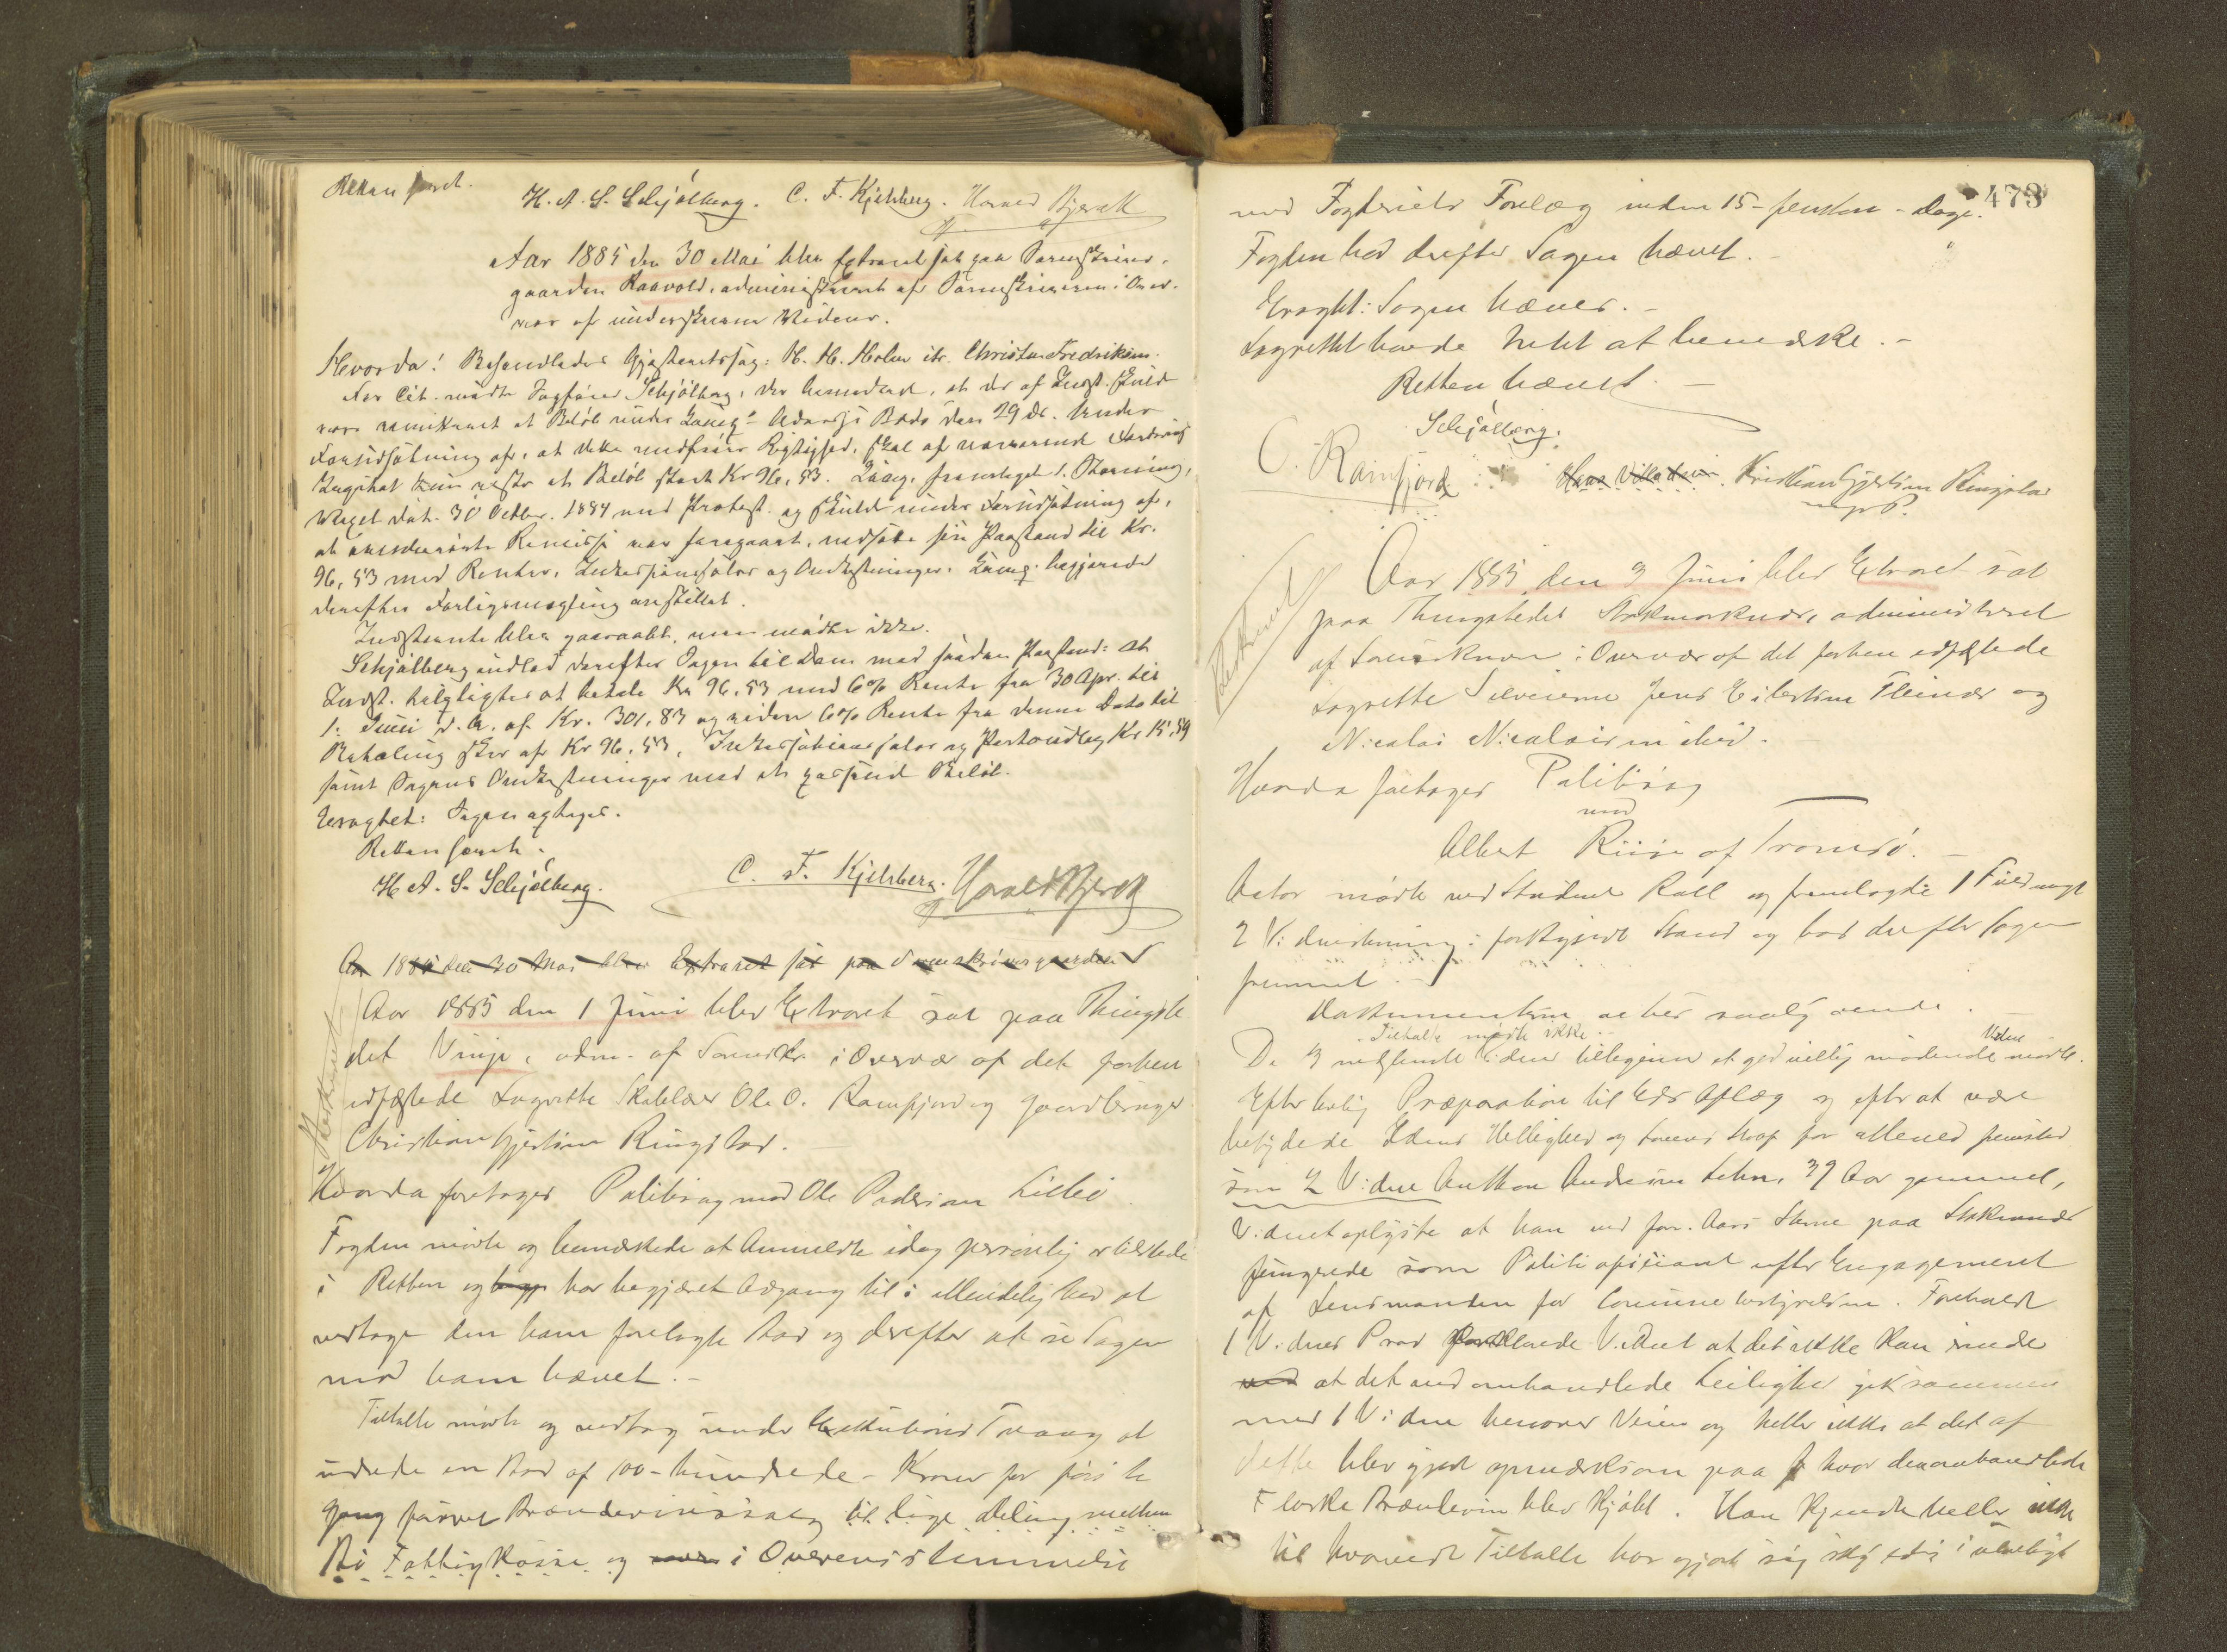 Retten hævet.
H. A. S. Schjølberg. C. F. Kjelsberg. Harald Bjerck
Aar 1885 den 30 Mai blev Extraret sat paa Sorenskriver-
gaarden Raavold, administreret af Sorenskriveren i Over-
vær af underskrevne Vidner.
Hvorda! Behandledes Gjæsteretssag: H. M. Holm ctr. Christen Fredriksen.
For Cit. mødte Sagfører Schjølberg, der anmeldte, at der af Indst. skulde
være remitteret et Beløb under Dato Bodø den 29 ds. Under
Forudsætning af, at dette medfører Rigtighed, skal af nærværende Fordring
Ingskat kun restere et Beløb stort Kr 96,53. fremlagde 1. Stævning,
Vexel dat. 30 Octbr. 1884 med Protest og skulde under Forudsætning af,
at omhandlede Remisse var foregaaet, nedsætte sin Paastand til Kr.
96,53 med Renter, Inkassationssalær og Omkostninger. begjærede
derefter Forligsmægling anstillet.
Indstævnte blev paaraabt, men mødte ikke.
Schjølberg indlod derefter Sagen til Dom med saadan Paastand: at
Indst. tilpligtes at betale Kr 96,53 med 6% Rente fra 30 Apr. til
1. Juni d. A. af Kr. 301,83 og siden 6% Rente fra denne Dato til
Betaling sker af Kr 96,53, Inkassationssalær og Portoudlæg Kr 15,59
samt Sagens Omkostninger med et passende Beløb.
Eragtet: Sagen optages.
Retten hævet.
H A. S. Schjølberg. C. F. Kjelsberg. Harald Bjerck
Aar 1885 den 30 Mai blev Extraret sat paa Sorenskrivergaarden
Aar 1885 den 1 Juni blev Extraret sat paa Thingste
det Vinje, adm. af Sorenskr. i Overvær af det forhen
edfæstede Lagrette Skolelærer Ole O. Ramfjord og Gaardbruger
Christian Gjertsen Ringstad.
Hvorda foretoges Politisag mod Ole Pedersen Lilleø
Fogden mødte og bemærkede at Anmeldte idag personlig er tilstede
i Retten og begj har begjæret Adgang til i Mindelighed at
vedtage den ham forelagte Bod og derefter at se Sagen
mod ham hævet.
Tiltalte mødte og vedtog under Exekutions Tvang at
udrede en Bod af 100 - hundrede - Kroner for første
Gang Brændevinssalg til lige Deling mellem
Bø Fattigkasse og i Overensstemmelse
473
med Fogderiets Forelæg inden 15 - femten - Dage.
Fogden bad derefter Sagen hævet.
Eragtet: Sagen hæves.
Lagrettet havde Intet at bemærke.
Retten hævet.
Schjølberg.
O. Ramfjord Hans Villadsen. Kristian Gjertsen Ringstad
m p P.
Beskrevet
Aar 1885 den 3 Juni blev Extraret sat
paa Thingstedet Stokmarknæs, administreret
af Sorenskriveren i Overvær af det forhen edfæstede
Lagrette Jens Eilertsen Fleinæs og
Nicolai Nicolaisen ibid.
Hvorda foretoges Politisag
mod
Albert Riise af Tromsø.
Actor mødte ved Student Rall og fremlagde 1 Fuldmagt
2 Vidnestevning i forkyndt Stand og bad derefter Sagen
fremmet.
Dokumenterne er her saalydende.
Tiltalte mødte ikke.
De 3 indstevnte Vidner tilligemed et godvillig mødende Vidne mødte.
Efter lovlig Præparation til Eds Aflæg og efter at være
betydede Edens Hellighed og Lovens Straf for Mened fremstod
som 2 Vidne Anthon Andreas Lehn, 37 Aar gammel,
Vidnet oplyste at han ved forr. Aars Stevne paa Stokmarknæs
fungerede som Politiofficiant efter Engagement
af Lensmanden for Communebestyrelsen. Foreholdt
1 Vidnes Prov forklarede Vidnet at det ikke kan mindes
at det ved omhandlede Leilighed gik sammen
med 1 Vidne henover Veien og heller ikke at det af
dette blev gjort opmærksom paa hvor den omhandlede
Flaske Brændevin blev kjøbt. Han kjendte heller ikke
til hvorvidt Tiltalte har gjort sig skyldig i ulovligt